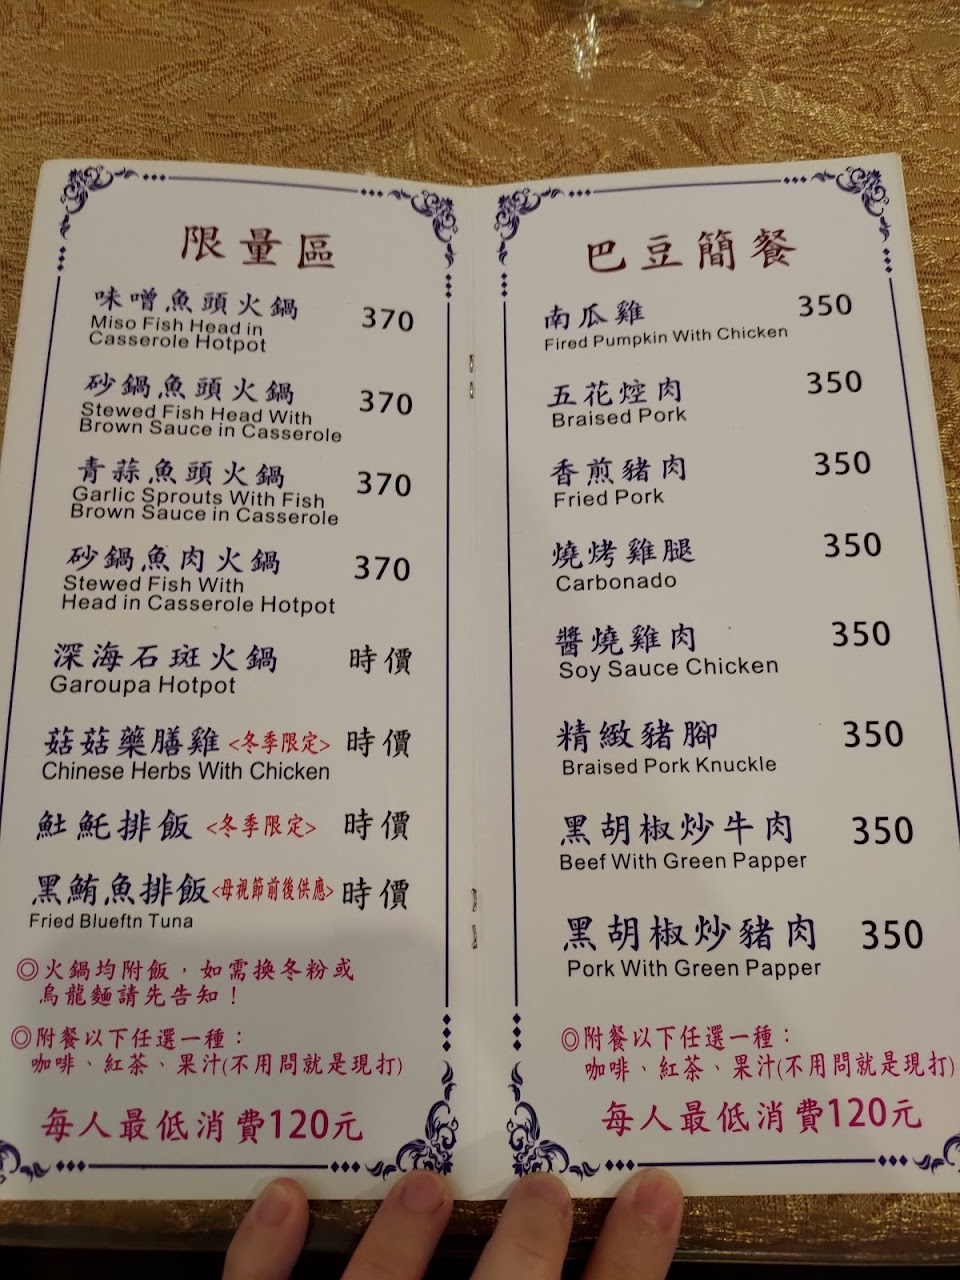 限量區
味噌魚頭火鍋 370
Miso Fish Head in
Casserole Hotpot
砂鍋魚頭火鍋 370
Stewed Fish Head With
Brown Sauce in Casserole
青蒜魚頭火鍋 370
Garlic Sprouts With Fish
Brown Sauce in Casserole
砂鍋魚肉火鍋 370
Stewed Fish With
Head in Casserole Hotpot
深海石斑火鍋 時價
Garoupa Hotpot
菇菇藥膳雞<冬季限定> 時價
Chinese Herbs With Chicken
魟魠排飯 <冬季限定> 時價
黑鮪魚排飯<母視節前後供應> 時價
Fried Blueftn Tuna
◎火鍋均附飯,如需換冬粉或
烏龍麵請先告知!
◎附餐以下任選一種:
咖啡、紅茶、果汁(不用問就是現打)
每人最低消費120元
巴豆簡餐
南瓜雞 350
Fired Pumpkin With Chicken
五花焢肉 350
Braised Pork
香煎豬肉 350
Fried Pork
燒烤雞腿 350
Carbonado
醬燒雞肉 350
Soy Sauce Chicken
精緻豬腳 350
Braised Pork Knuckle
黑胡椒炒牛肉 350
Beef With Green Papper
黑胡椒炒豬肉 350
Pork With Green Papper
◎附餐以下任選一種:
咖啡、紅茶、果汁(不用問就是現打)
每人最低消費120元